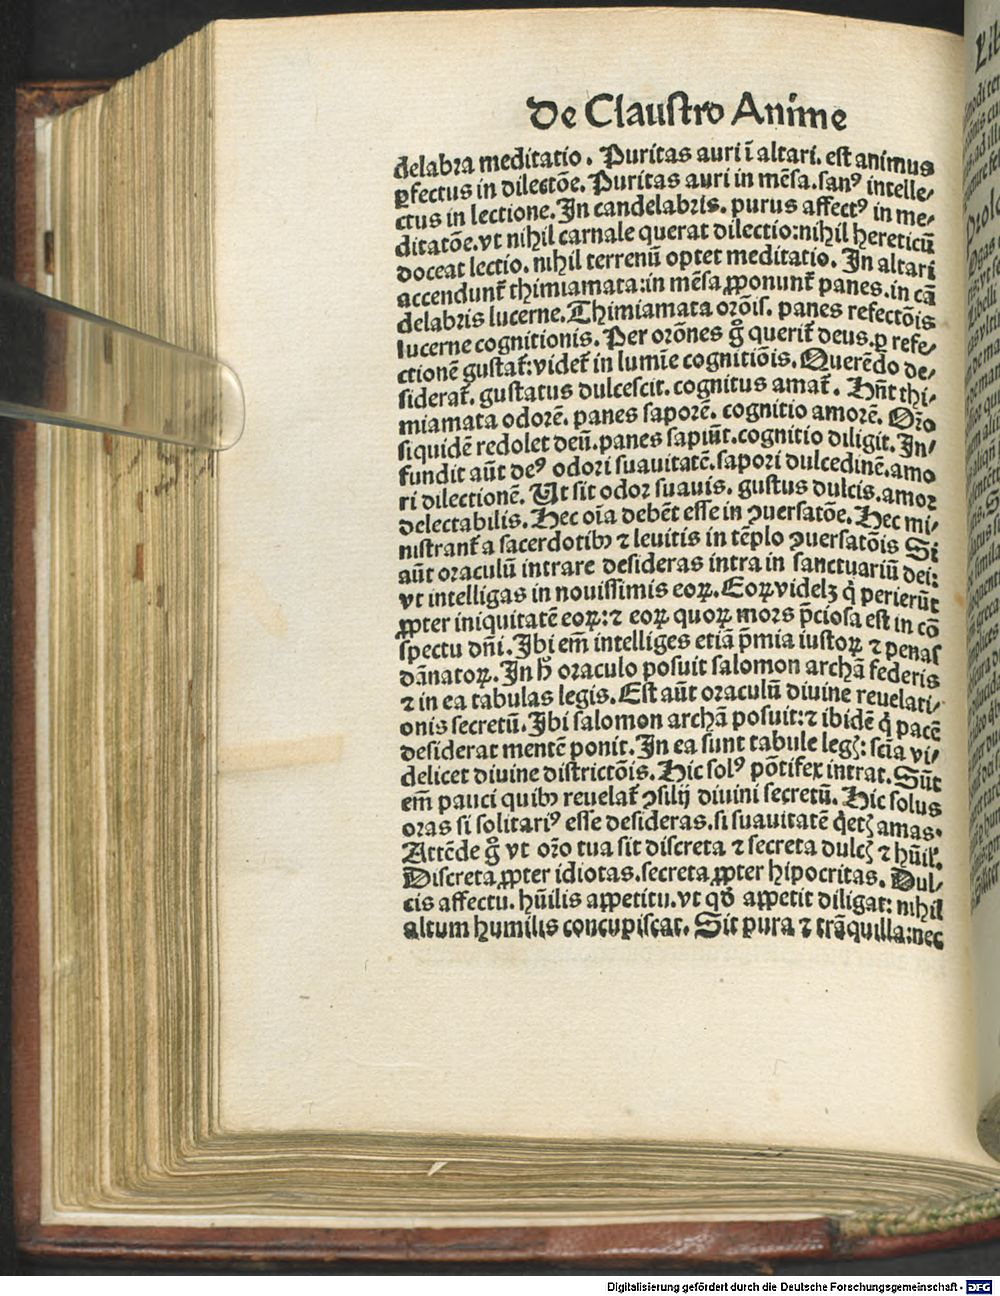 De Claustro Anime
delabra meditatio. Puritas auri ī altari. est animus
ꝑfectus in dilectōe. Puritas auri in mēsa. sanꝰ intelle⸗
ctus in lectione. In candelabris. purus affectꝰ in me⸗
ditatōe. vt nihil carnale querat dilectio: nihil hereticū
doceat lectio. nihil terrenū optet meditatio. In altari
accendunt᷑ thimiamata: in mēsa ꝓponunt᷑ panes. in cā
delabris lucerne. Thimiamata orōis. panes refectōis
lucerne cognitionis. Per orōnes gͦ querit᷑ deus. ꝑ refe⸗
ctionē gustat᷑: videt᷑ in lumīe cognitiōis. Querēdo de⸗
siderat᷑. gustatus dulcescit. cognitus amat᷑. Hn̄t thi⸗
miamata odorē. panes saporē. cognitio amorē. Orō
siquidē redolet deū. panes sapiūt. cognitio diligit. In⸗
fundit aūt deꝰ odori suauitatē. sapori dulcedinē. amo
ri dilectionē. Ut sit odor suauis. gustus dulcis. amor
delectabilis. Hec oīa debēt esse in ꝯuersatōe. Hec mi⸗
nistrant᷑ a sacerdotibꝫ ⁊ leuitis in tēplo ꝯuersatōis Si
aūt oraculū intrare desideras intra in sanctuariū dei:
vt intelligas in nouissimis eoꝝ. Eoꝝ videlꝫ q̇ perierūt
ꝓpter iniquitatē eoꝝ: ⁊ eoꝝ quoꝝ mors p̄ciosa est in cō
spectu dn̄i. Ibi em̄ intelliges etiā p̄mia iustoꝝ ⁊ penas
dānatoꝝ. In hͦ oraculo posuit salomon archā federis
⁊ in ea tabulas legis. Est aūt oraculū diuine reuelati⸗
onis secretū. Ibi salomon archā posuit: ⁊ ibidē q̇ pacē
desiderat mentē ponit. In ea sunt tabule legꝭ: scīa vi⸗
delicet diuine districtōis. Hic solꝰ pōtifex intrat. Sūt
em̄ pauci quibꝫ reuelat᷑ ꝯsilij diuini secretū. Hic solus
oras si solitariꝰ esse desideras. si suauitatē q̇etꝭ amas.
Attēde gͦ vt orō tua sit discreta ⁊ secreta dulcꝭ ⁊ hūil̛.
Discreta ꝓpter idiotas. secreta ꝓpter hipocritas. Dul⸗
cis affectu. hūilis appetitu. vt qď appetit diligat: nihil
altum humilis concupiscat. Sit pura ⁊ trāquilla: nec
Digitalisierung gefördert durch die Deutsche Forschungsgemeinschaft - DFG